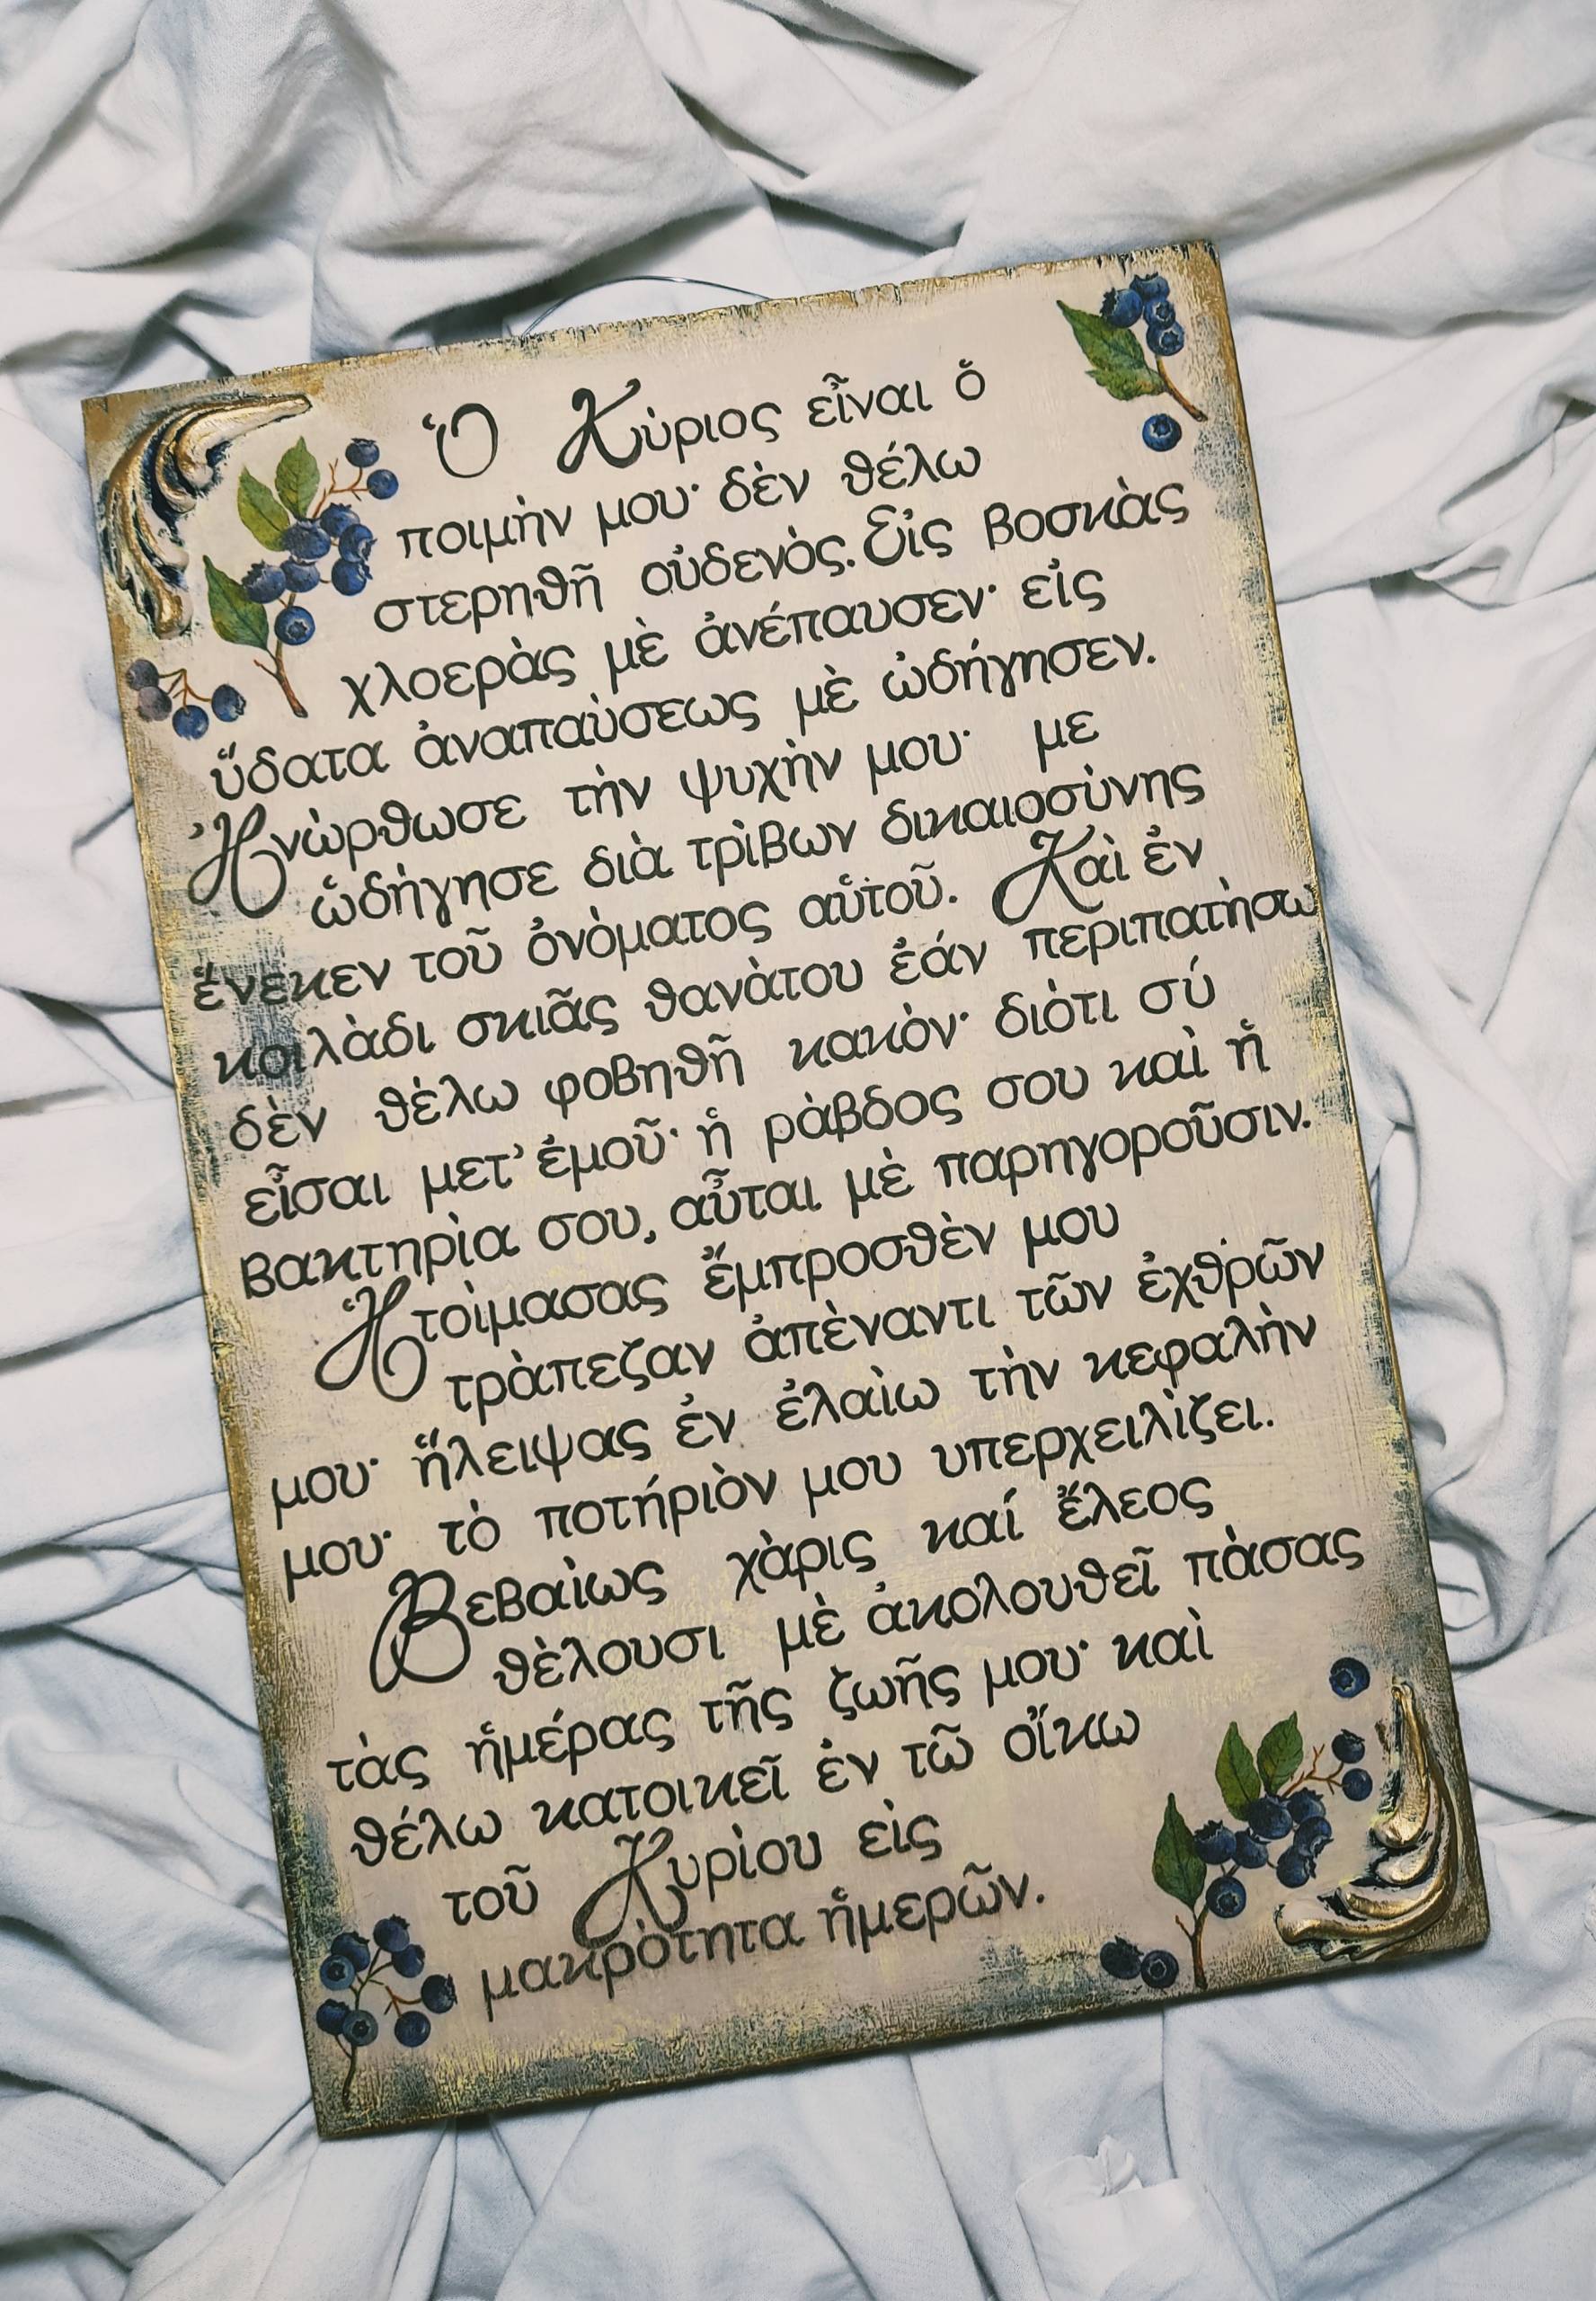 Ὁ Κὺριος εἶναι ὁ
ποιμὴν μου· δὲν θέλω
στερηθῆ οὐδενὸς. Εἰς βοσκὰς
χλοερὰς μὲ ἀνέπαυσεν· εἰς
ὕδατα ἀναπαὺσεως μὲ ὡδήγησεν.
Ἠνὼρθωσε τὴν ψυχὴν μου· με
ὡδήγησε διὰ τρὶβων δικαιοσὺνης
ἕνεκεν τοῦ ὀνὸματος αὑτοῦ. Καὶ ἐν
κοιλὰδι σκιᾶς θανὰτου ἐάν περιπατὴσω
δὲν θὲλω φοβηθῆ κακὸν· διὸτι σύ
εἶσαι μετ' ἐμοῦ· ἡ ρὰβδος σου καὶ ἡ
βακτηρὶα σου, αὗται μὲ παρηγοροῦσιν.
Ἡτοὶμασας ἔμπροσθὲν μου
τρὰπεζαν ἀπὲναντι τῶν ἐχθρῶν
μου· ἤλειψας ἐν ἐλαὶω τὴν κεφαλὴν
μου· τὸ ποτήριὸν μου υπερχειλὶζει.
Βεβαὶως χὰρις καί ἔλεος
θὲλουσι μὲ ἀκολουθεῖ πὰσας
τὰς ἡμέρας τῆς ζωῆς μου· καὶ
θέλω κατοικεῖ ἐν τῶ οἴκω
τοῦ Κυρὶου εὶς
μακρὸτητα ἡμερῶν.